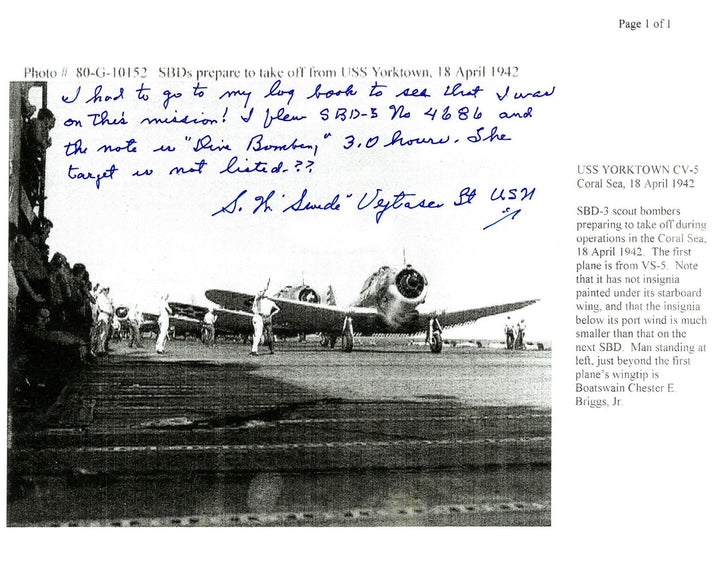 Page 1 of 1
Photo # 80-G-10152 SBDs prepare to take off from USS Yorktown, 18 April 1942
I had to go to my log book to see that I was
on this mission! I flew SBD-3 No 4686 and
the note is "Dive Bomben," 3.0 hours. The
target is not listed.??
S. W. "Swede" Vejtasa Lt USN
USS YORKTOWN CV-5
Coral Sea, 18 April 1942
SBD-3 scout bombers
preparing to take off during
operations in the Coral Sea,
18 April 1942. The first
plane is from VS-5. Note
that it has not insignia
painted under its starboard
wing, and that the insignia
below its port wind is much
smaller than that on the
next SBD. Man standing at
left, just beyond the first
plane's wingtip is
Boatswain Chester E.
Briggs, Jr.